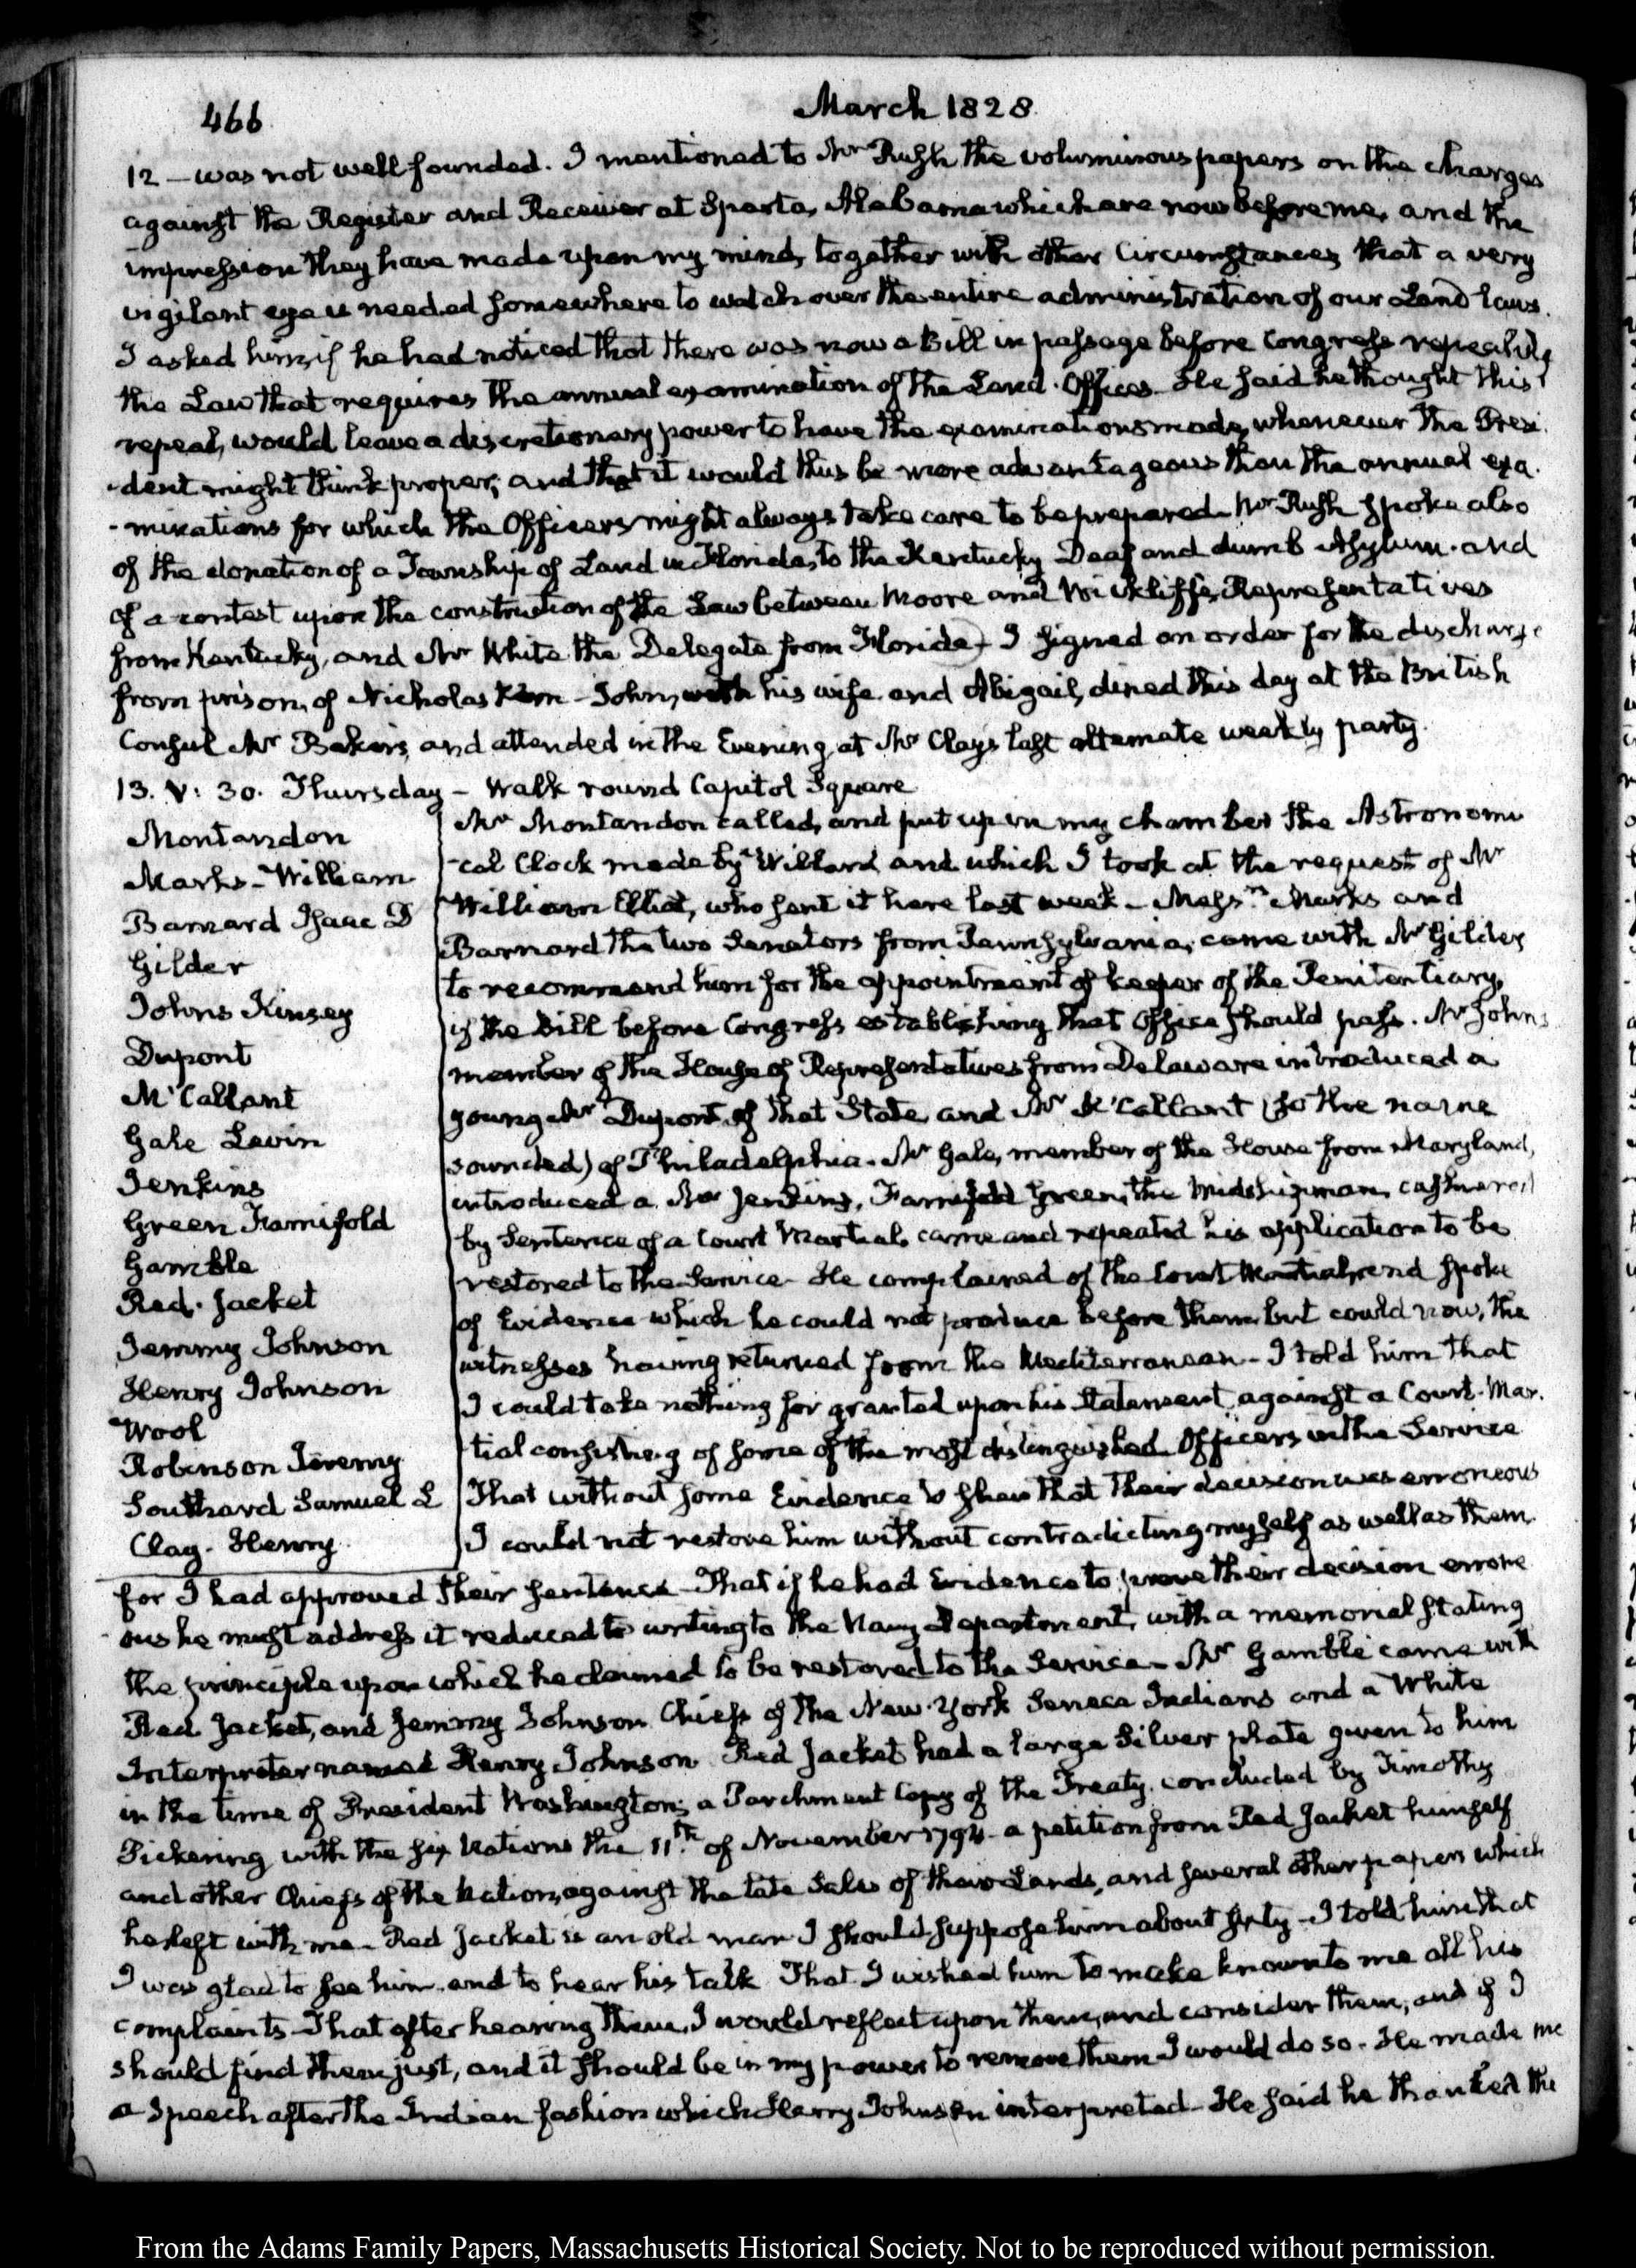 466
March 1828
12 – was not well founded. I mentioned to Mr Rush the voluminous papers on the charges
against the Register and Receiver at Sparta, Alabama which are now before me, and the
impression they have made upon my mind, together with other Circumstances that a very
vigilant eye is needed somewhere to watch over the entire administration of our Land laws.
I asked him, if he had noticed that there was now a Bill in passage before Congress repealing
the Law that requires the annual examination of the Land-Offices. He said he thought this
repeal, would leave a discretionary power to have the examinations made, whenever the Presi-
-dent might think proper, and that it would thus be more advantageous than the annual exa-
-minations for which the Officers might always take care to be prepared. Mr Rush spoke also
of the donation of a Township of Land in Florida, to the Kentucky Deaf and dumb Asylum. and
of a contest upon the construction of the Law between Moore and Wickliffe, Representatives
from Kentucky, and Mr White the Delegate from Florida – I signed an order for the discharge
from prison, of Nicholas Kern – John, with his wife and Abigail, dined this day at the British
Consul Mr Baker's, and attended in the Evening at Mrs Clay's last alternate weekly party.
13. V: 30. Thursday – Walk round Capitol Square
Montandon
Marks – William
Barnard Isaac D
Gilder
Johns Kinsey
Dupont
M'Callant
Gale Levin
Jenkins
Green Farnifold
Gamble
Red-Jacket
Jemmy Johnson
Henry Johnson
Wool
Robinson Jeremy
Southard Samuel L
Clay-Henry
Mr Montandon called, and put up in my chamber the Astronomi
-cal Clock made by Willard and which I took at the request of Mr
William Elliot, who sent it here last week – Messrs Marks and
Barnard the two Senators from Pennsylvania, came with Mr Gilder,
to recommend him for the appointment of keeper of the Penitentiary,
if the Bill before Congress establishing that Office should pass. Mr Johns
member of the House of Representatives from Delaware introduced a
young Mr Dupont, of that State and Mr M'Callant (so the name
sounded) of Philadelphia. Mr Gale, member of the House from Maryland,
introduced a Mr Jenkins, Farnifold Green, the Midshipman, cashiered
by Sentence of a Court Martial, came and repeated his application to be
restored to the Service – He complained of the Court Martial, and spoke
of Evidence which he could not produce before them, but could now, the
witnesses having returned from the Mediterranean – I told him that
I could take nothing for granted upon his Statement against a Court-Mar-
tial consisting of some of the most distinguished Officers in the Service
That without some Evidence to shew that their decision was erroneous
I could not restore him without contradicting myself as well as them
for I had approved their sentence – That if he had Evidence to prove their decision errone
-ous he must address it reduced to writing to the Navy Department, with a memorial stating
the principle upon which he claimed to be restored to the Service – Mr Gamble came with
Red Jacket, and Jemmy Johnson Chiefs of the New-York Seneca Indians and a White
Interpreter named Henry Johnson. Red Jacket had a large Silver plate given to him
in the time of President Washington; a Parchment Copy of the Treaty, concluded by Timothy
Pickering with the six Nations the 11th of November 1794 – a petition from Red Jacket himself
and other Chiefs of the Nation, against the late Sales of their Lands, and several other papers which
he left with me – Red Jacket is an old man I should suppose him about sixty – I told him that
I was glad to see him, and to hear his talk. That I wished him to make known to me all his
complaints – That after hearing them, I would reflect upon them, and consider them, and if I
should find them just, and it should be in my power to remove them I would do so. He made me
a Speech after the Indian fashion which Harry Johnson interpreted – He said he thanked the
From the Adams Family Papers, Massachusetts Historical Society. Not to be reproduced without permission.